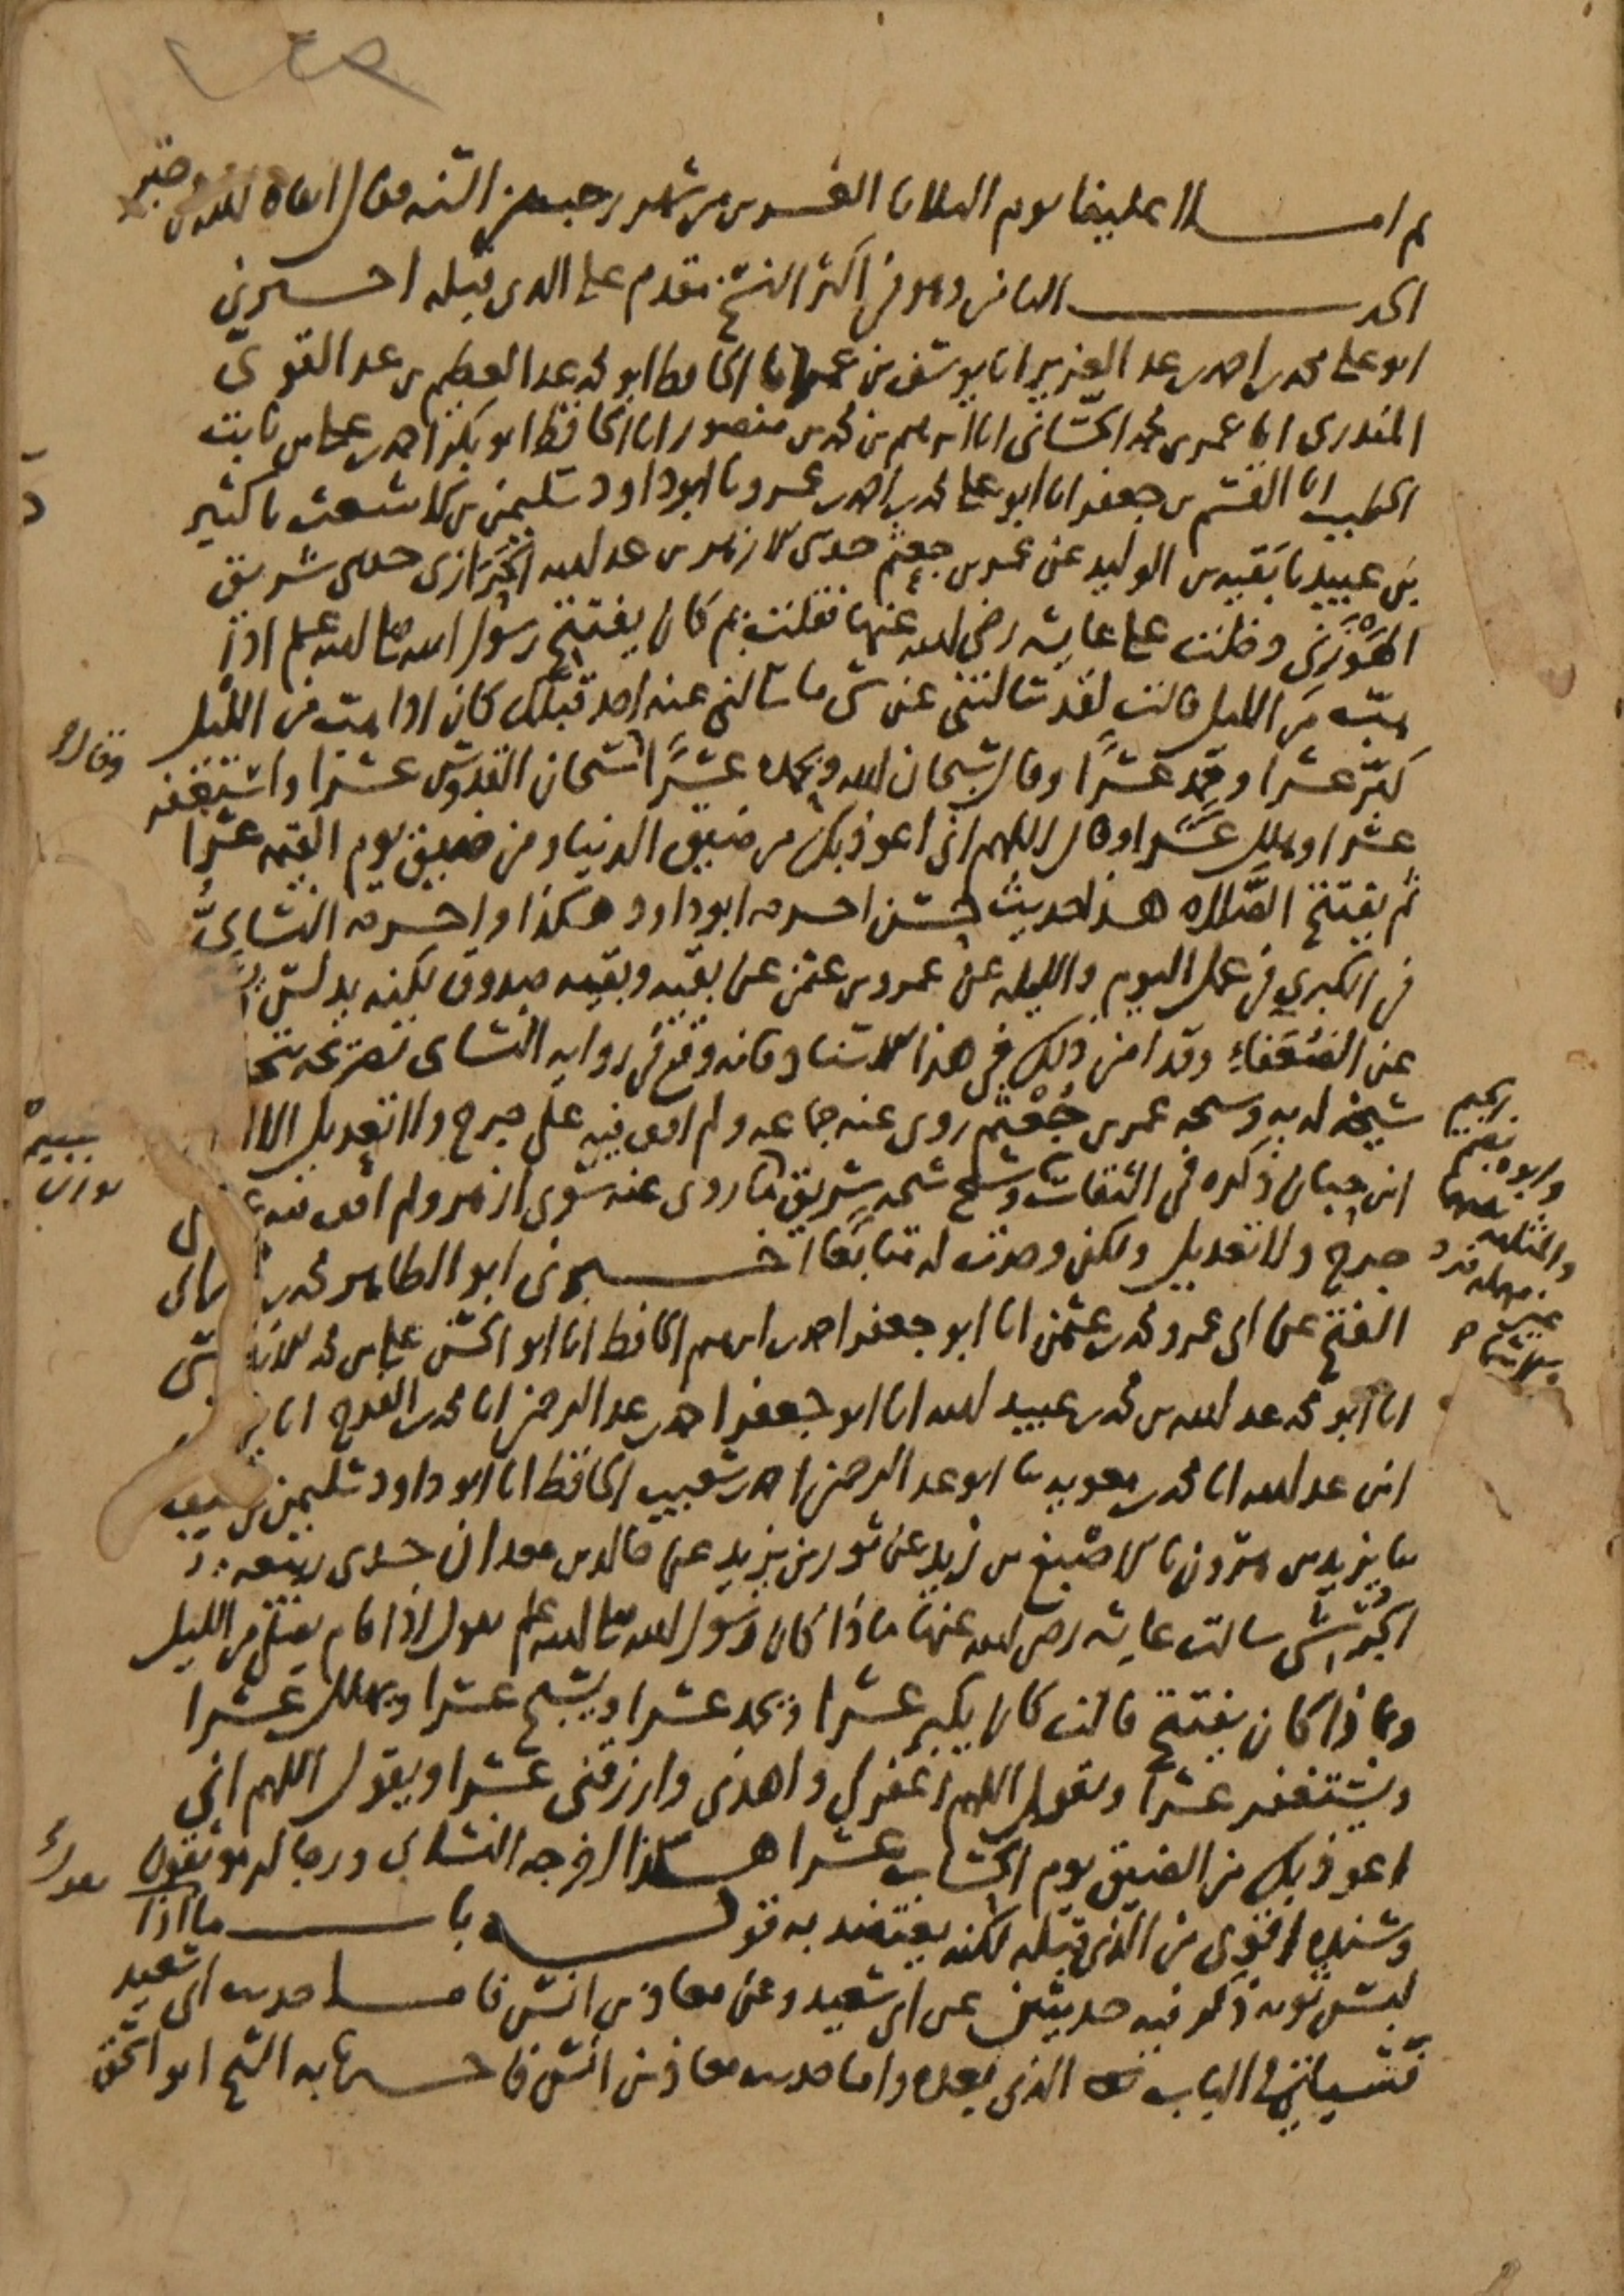 ثم املا علينا يوم الثلاثا العشرين من شهر رجب من السنه فقال
الحديث الثاني وهو في اكثر النسخ مقدم على الذي قبله اخبرني
ابو علي محمد بن احمد بن عبد العزيز انا يوسف بن عمر انا الحافظ ابو محمد عبد العظيم بن عبد القوي
المنذري انا عمر بن محمد الحساني انا ابرهيم بن محمد بن منصور انا الحافظ ابو بكر احمد بن علي بن ثابت
الخطيب انا القسم بن جعفر انا ابو علي محمد بن احمد بن عمرو نا ابو داود سليمن بن الاشعث نا كثير
بن عبيد نا بقيه بن الوليد عن عمر بن جعثم حدثني الازهر بن عبد الله الحرازي حدثني شريق
الهوزني دخلت على عايشه رضي الله عنها فقلت بم كان يفتتح رسول الله صلى الله عليه وسلم اذا
هب من الليل قالت لقد سالتني عن شي ما سالني عنه احد قبلك كان اذا هب من الليل
كبر عشرا وحمد عشرا وقال سبحان الله وبحمده عشرا سبحان القدوس عشرا واستغفر
وقال
عشرا وهلل عشرا وقال اللهم اني اعوذ بك من ضيق الدنيا ومن ضيق يوم القيمه عشرا
ثم يفتتح الصلاه هذا حديث حسن اخرجه ابو داود هكذا واخرجه النساي
في الكبري في عمل اليوم والليله عن عمرو بن عثمن عن بقيه وبقيه صدوق لكنه يدلس
عن الضعفاء وقد امن ذلك في هذا الاسناد فانه وقع في روايه النساي تصريحه بتحديث
شيخه له به وشيخه عمر بن جعثم روى عنه جماعه ولم اقف فيه على جرح ولا تعديل الا ان
ابن حبان ذكره في الثقات وشيخ شيخه شريق ما روى عنه سوى ازهر ولم اقف فيه على
جرح ولا تعديل ولكني وجدت له متابعا اخبرني ابو الطاهر محمد بن
الفتح عن ابي عمرو محمد بن عثمن انا ابو جعفر احمد بن ابرهيم الحافظ انا ابو الحسن علي بن محمد
انا ابو محمد عبد الله بن محمد بن عبيد الله انا ابو جعفر احمد بن عبد الرحمن انا محمد بن الفرج انا
ابن عبد الله انا محمد بن معويه نا ابو عبد الرحمن احمد بن شعيب الحافظ انا ابو داود سليمن بن سيف
نا يزيد بن هرون نا الاصبغ بن زيد عن ثور بن يزيد عن خالد بن معدان حدثني ربيعه
الجرشي سالت عايشه رضي الله عنها ماذا كان رسول الله صلى الله عليه وسلم يقول اذا قام يصلي من الليل
وبماذا كان يفتتح قالت كان يكبر عشرا ويحمد عشرا ويسبح عشرا ويهلل عشرا
ويستغفر عشرا ويقول اللهم اغفر لي واهدني وارزقني عشرا ويقول اللهم اني
اعوذ بك من الضيق يوم الحساب عشرا هكذا اخرجه النساي ورجاله موثقون
وسنده اقوى من الذي قبله لكنه يعتضد به قوله باب ما اذا
لبس ثوبه ذكر فيه حديثين عن ابي سعيد وعن معاذ بن انس فاما حديث ابي سعيد
فسياتي في الباب الذي بعده واما حديث معاذ بن انس فاخبرنا به الشيخ ابو اسحق